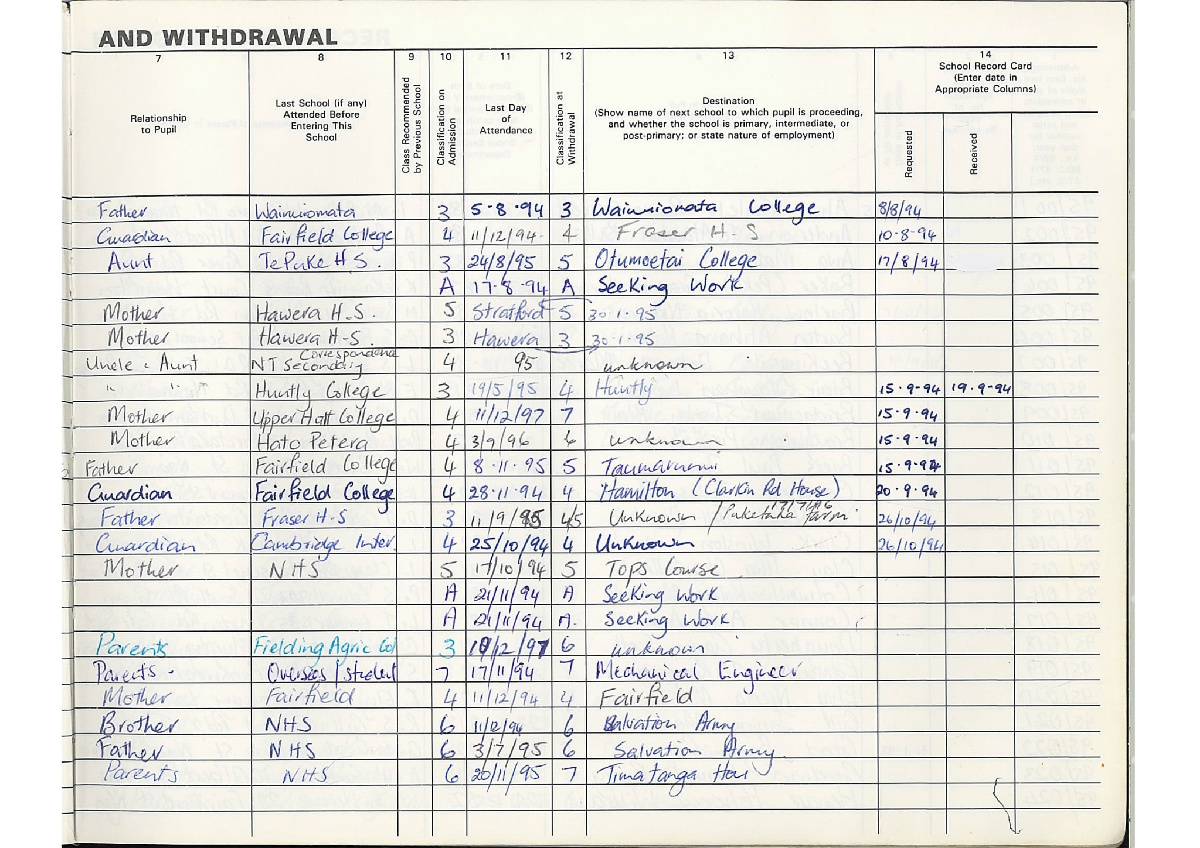 AND WITHDRAWAL
7 8 9 10 11 12 13 14
Relationship to Pupil
Last School (if any) Attended Before Entering This School
Class Recommended by Previous School
Classification on Admission
Last Day of Attendance
Classification at Withdrawal
Destination
(Show name of next school to which pupil is proceeding, and whether the school is primary, intermediate, or post-primary; or state nature of employment)
School Record Card (Enter date in Appropriate Columns)
Requested
Received
Father Wainuiomata 3 5·8·94 3 Wainuiomata College 8/8/94
Guardian Fairfield College 4 11/12/94 4 Fraser H-S 10-8-94
Aunt Te Puke H.S. 3 24/8/95 5 Otumoetai College 17/8/94
A 17·8·94 A Seeking Work
Mother Hawera H-S. 5 Stratford 5 30·1·95
Mother Hawera H-S. 3 Hawera 3 30·1·95
Uncle & Aunt NT Secondary Correspondence 4 95 unknown
" " Huntly College 3 19/5/95 4 Huntly 15·9·94 19·9·94
Mother Upper Hutt College 4 11/12/97 7 15·9·94
Mother Hato Petera 4 3/9/96 6 unknown 15·9·94
Father Fairfield College 4 8·11·95 5 Taumarunui 15·9·94
Guardian Fairfield College 4 28·11·94 4 Hamilton (Clarkin Rd House) 20·9·94
Father Fraser H-S 3 11/9/95 45 Unknown / farm 26/10/94
Guardian Cambridge Inter. 4 25/10/94 4 Unknown 26/10/94
Mother NHS 5 17/10/94 5 Tops Course
A 21/11/94 A Seeking Work
A 21/11/94 A. Seeking Work
Parents Fielding Agric Col 3 10/12/97 6 unknown
Parents - Overseas / Student 7 17/11/94 7 Mechanical Engineer
Mother Fairfield 4 11/12/94 4 Fairfield
Brother NHS 6 94 6 Salvation Army
Father NHS 6 3/7/95 6 Salvation Army
Parents NHS 6 20/11/95 7 Timatanga Hou